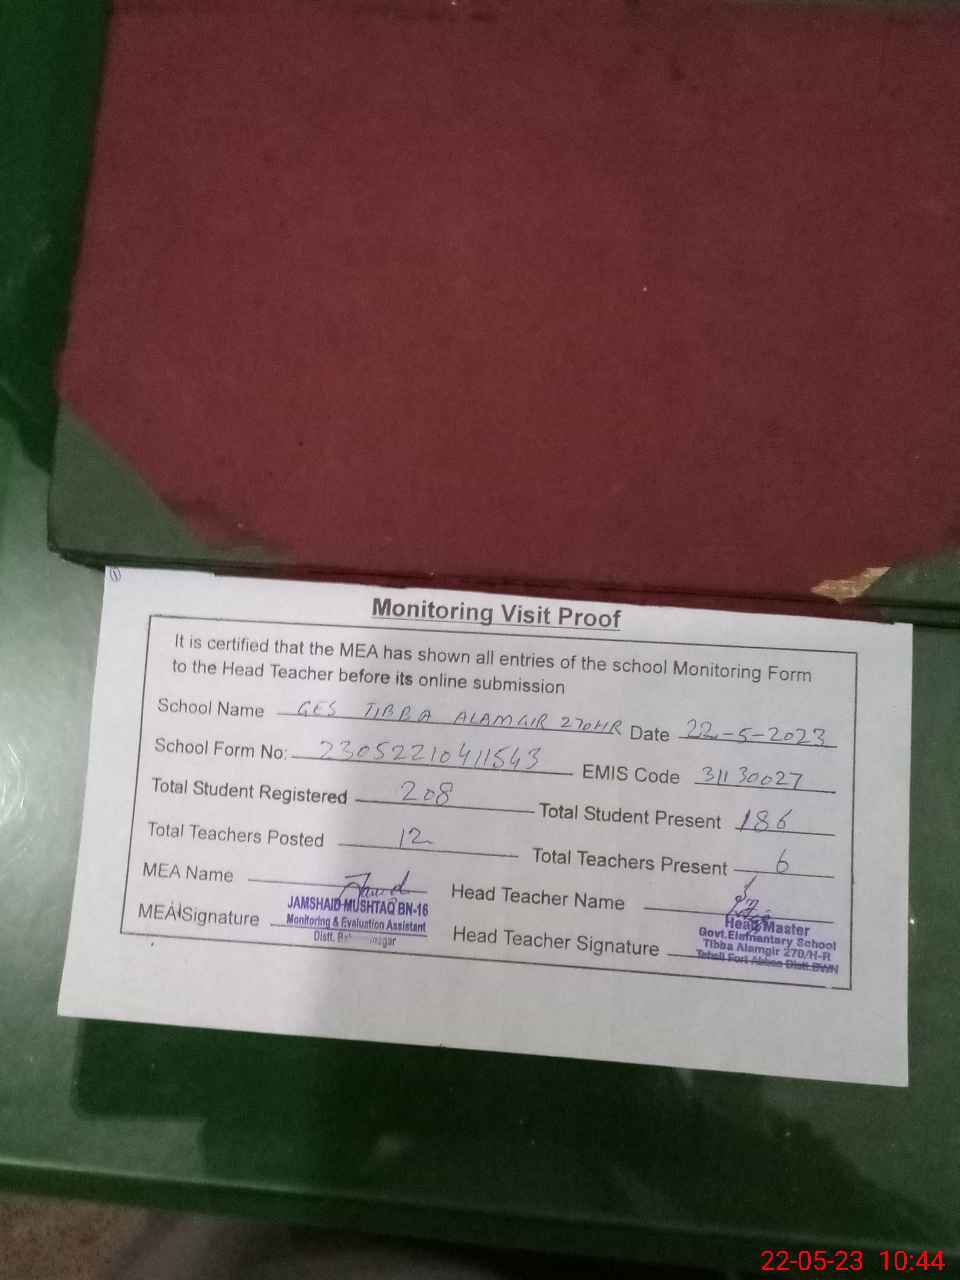 (1)
Monitoring Visit Proof
It is certified that the MEA has shown all entries of the school Monitoring Form
to the Head Teacher before its online submission
School Name GES TIBBA ALAMGIR 270HR Date 22-5-2023
School Form No: 23052210411543 EMIS Code 31130027
Total Student Registered 208 Total Student Present 186
Total Teachers Posted 12 Total Teachers Present 6
MEA Name Head Teacher Name
MEA Signature Head Teacher Signature
JAMSHAID MUSHTAQ BN-16
Monitoring & Evaluation Assistant
Distt.
Head Master
Govt.Elementary School
Tibba Alamgir 270/H-R
Tehsil Fort Abbas Distt.BWN
22-05-23 10:44